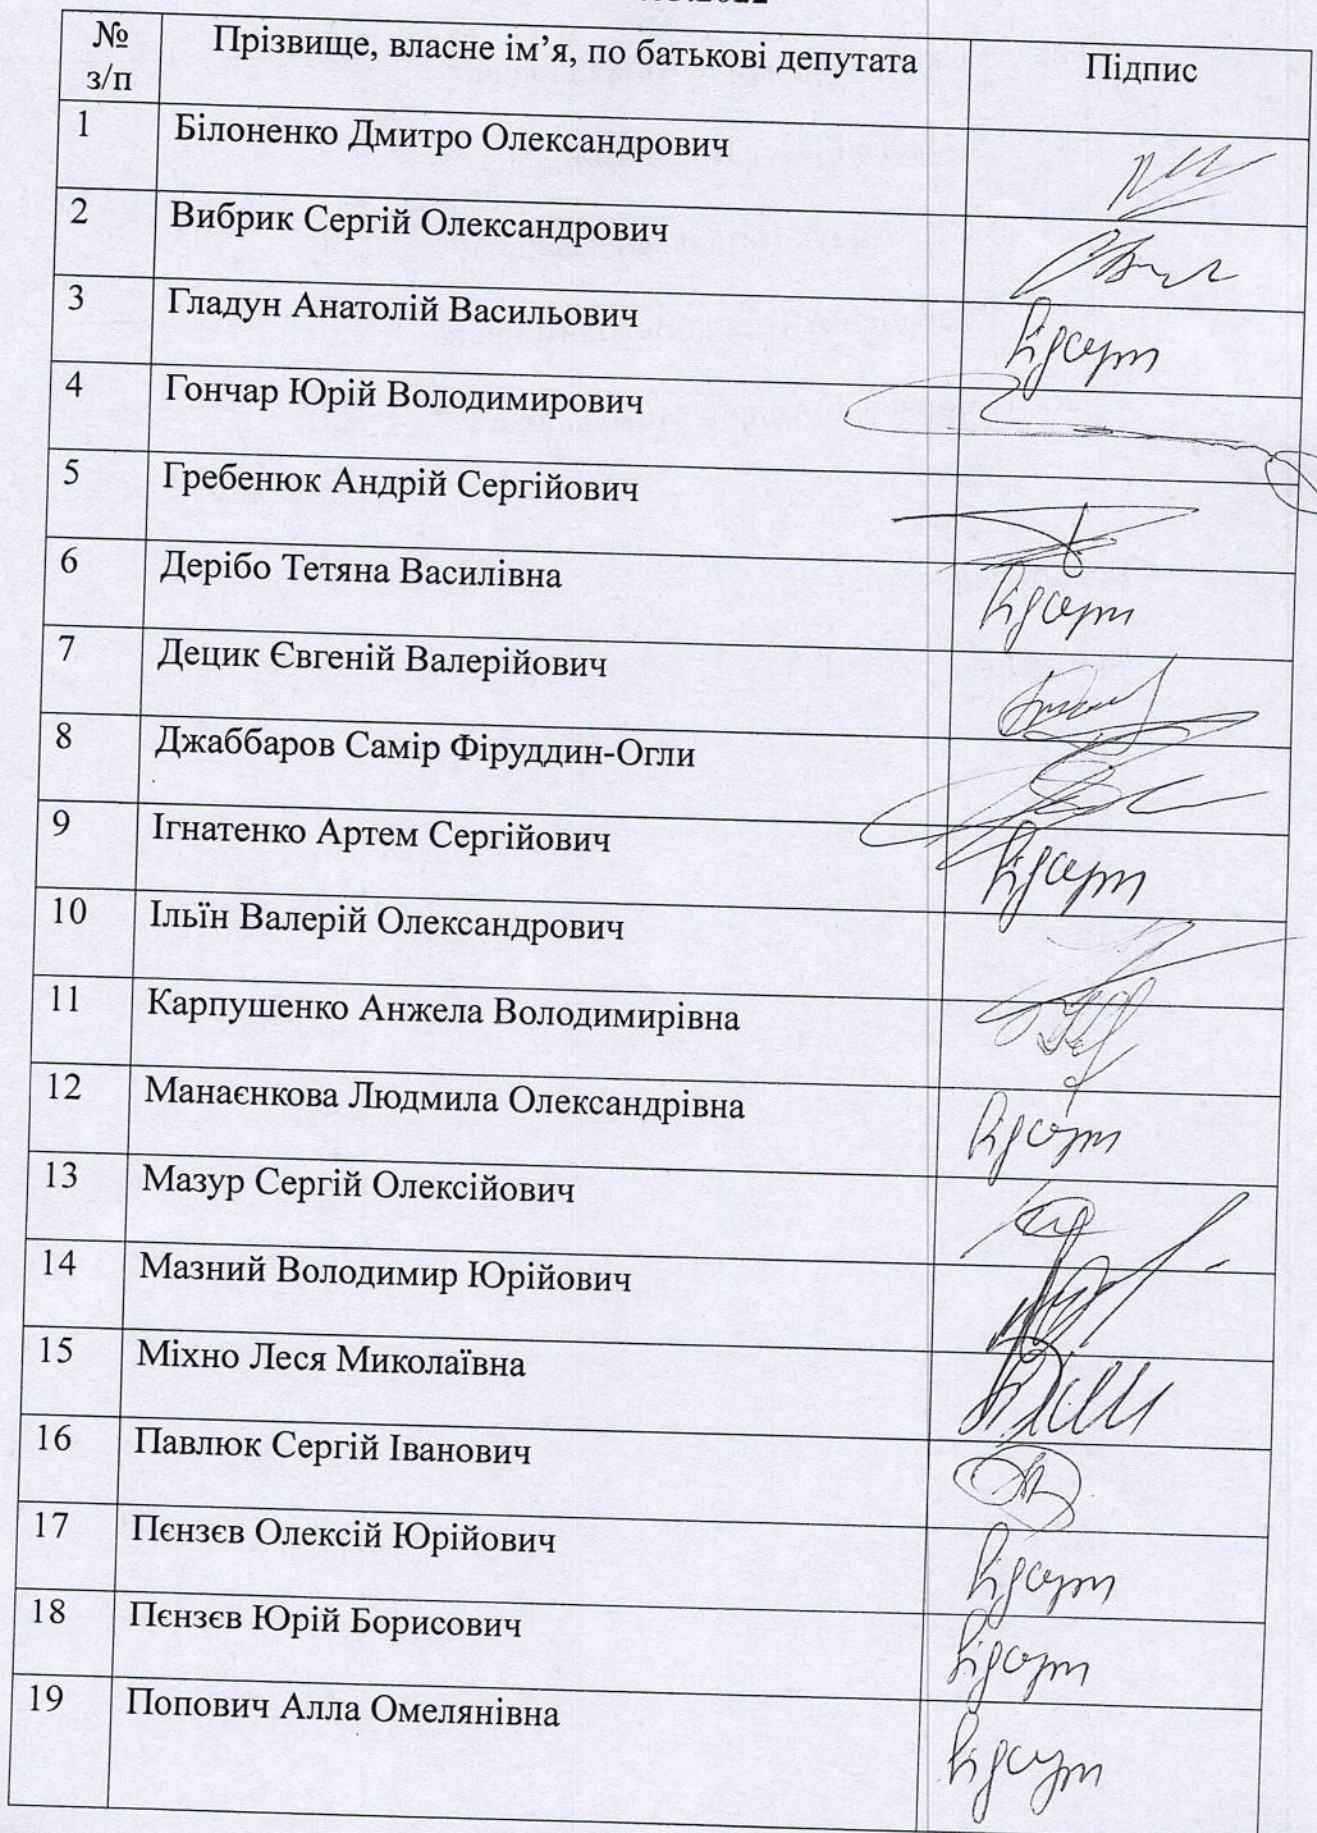 № з/п Прізвище, власне ім’я, по батькові депутата Підпис
1 Білоненко Дмитро Олександрович
2 Вибрик Сергій Олександрович
3 Гладун Анатолій Васильович відсутн
4 Гончар Юрій Володимирович
5 Гребенюк Андрій Сергійович
6 Дерібо Тетяна Василівна відсутн
7 Децик Євгеній Валерійович
8 Джаббаров Самір Фіруддин-Огли
9 Ігнатенко Артем Сергійович відсутн
10 Ільїн Валерій Олександрович
11 Карпушенко Анжела Володимирівна
12 Манаєнкова Людмила Олександрівна відсутн
13 Мазур Сергій Олексійович
14 Мазний Володимир Юрійович
15 Міхно Леся Миколаївна
16 Павлюк Сергій Іванович
17 Пєнзєв Олексій Юрійович відсутн
18 Пєнзєв Юрій Борисович відсутн
19 Попович Алла Омелянівна відсутн